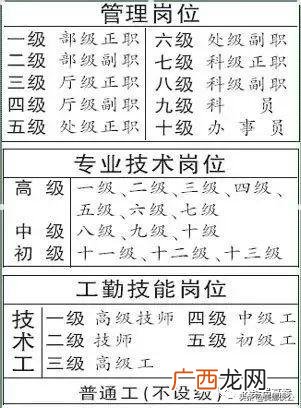 管理岗位
一级 部级正职 六级 处级副职
二级 部级副职 七级 科级正职
三级 厅级正职 八级 科级副职
四级 厅级副职 九级 科 员
五级 处级正职 十级 办 事 员
专业技术岗位
高 级 一级、二级、三级、四级、
五级、六级、七级
中 级 八级、九级、十级
初 级 十一级、十二级、十三级
工勤技能岗位
技 一级 高级技师 四级 中级工
术 二级 技师 五级 初级工
工 三级 高级工
普通工(不设级)
广西龙网